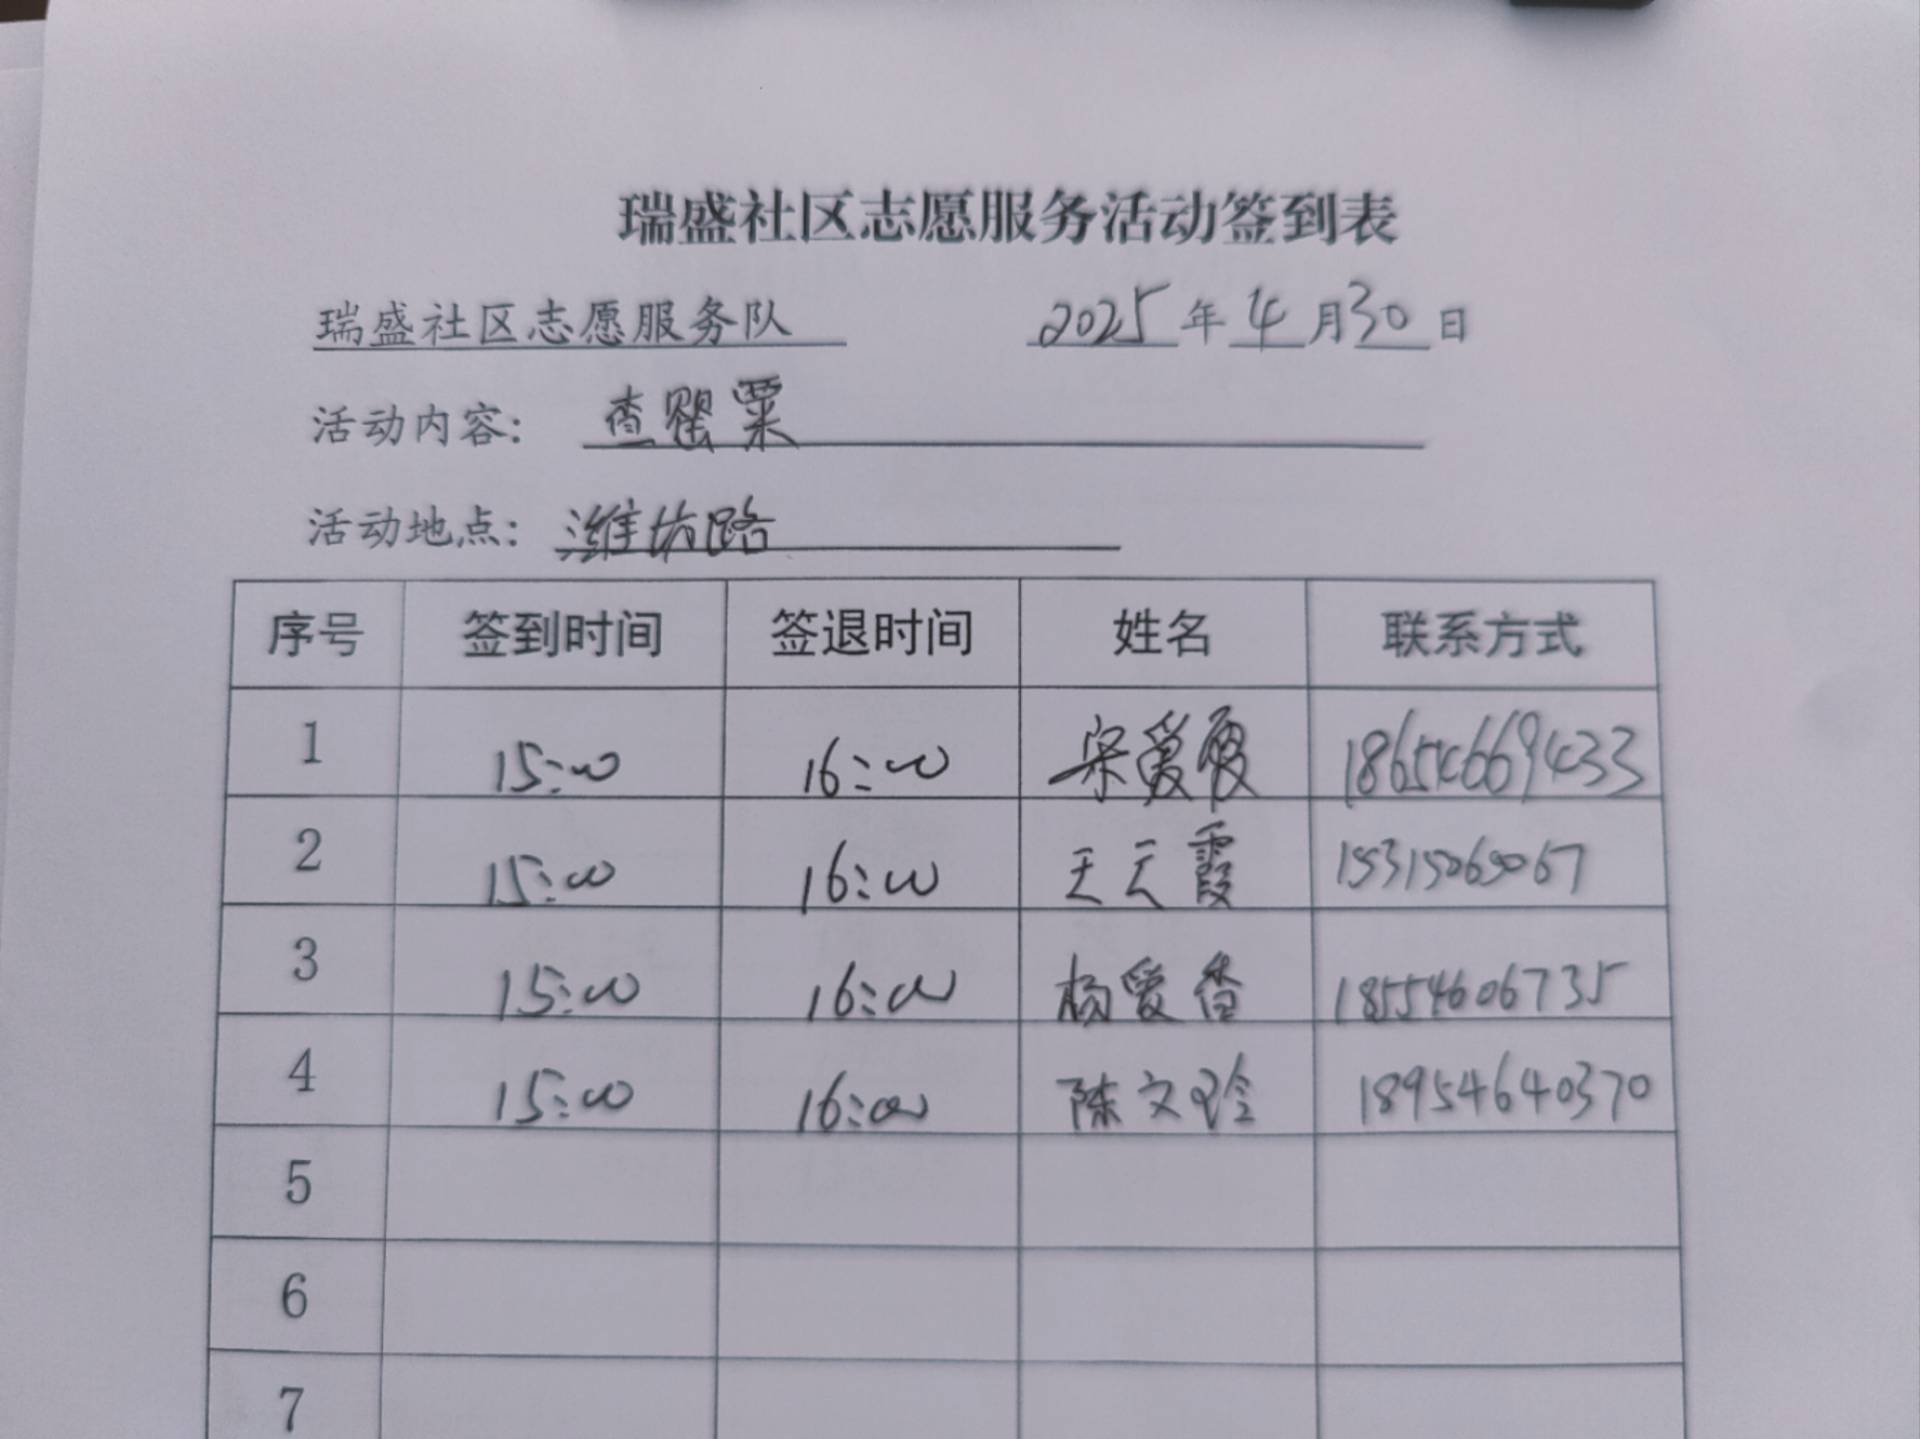 瑞盛社区志愿服务活动签到表
瑞盛社区志愿服务队 2025年4月30日
活动内容: 查罂粟
活动地点: 潍坊路
序号 签到时间 签退时间 姓名 联系方式
1 15:00 16:00 宋爱霞 18654669433
2 15:00 16:00 王云霞 15315065067
3 15:00 16:00 杨爱香 18554606735
4 15:00 16:00 陈文玲 18954640370
5
6
7